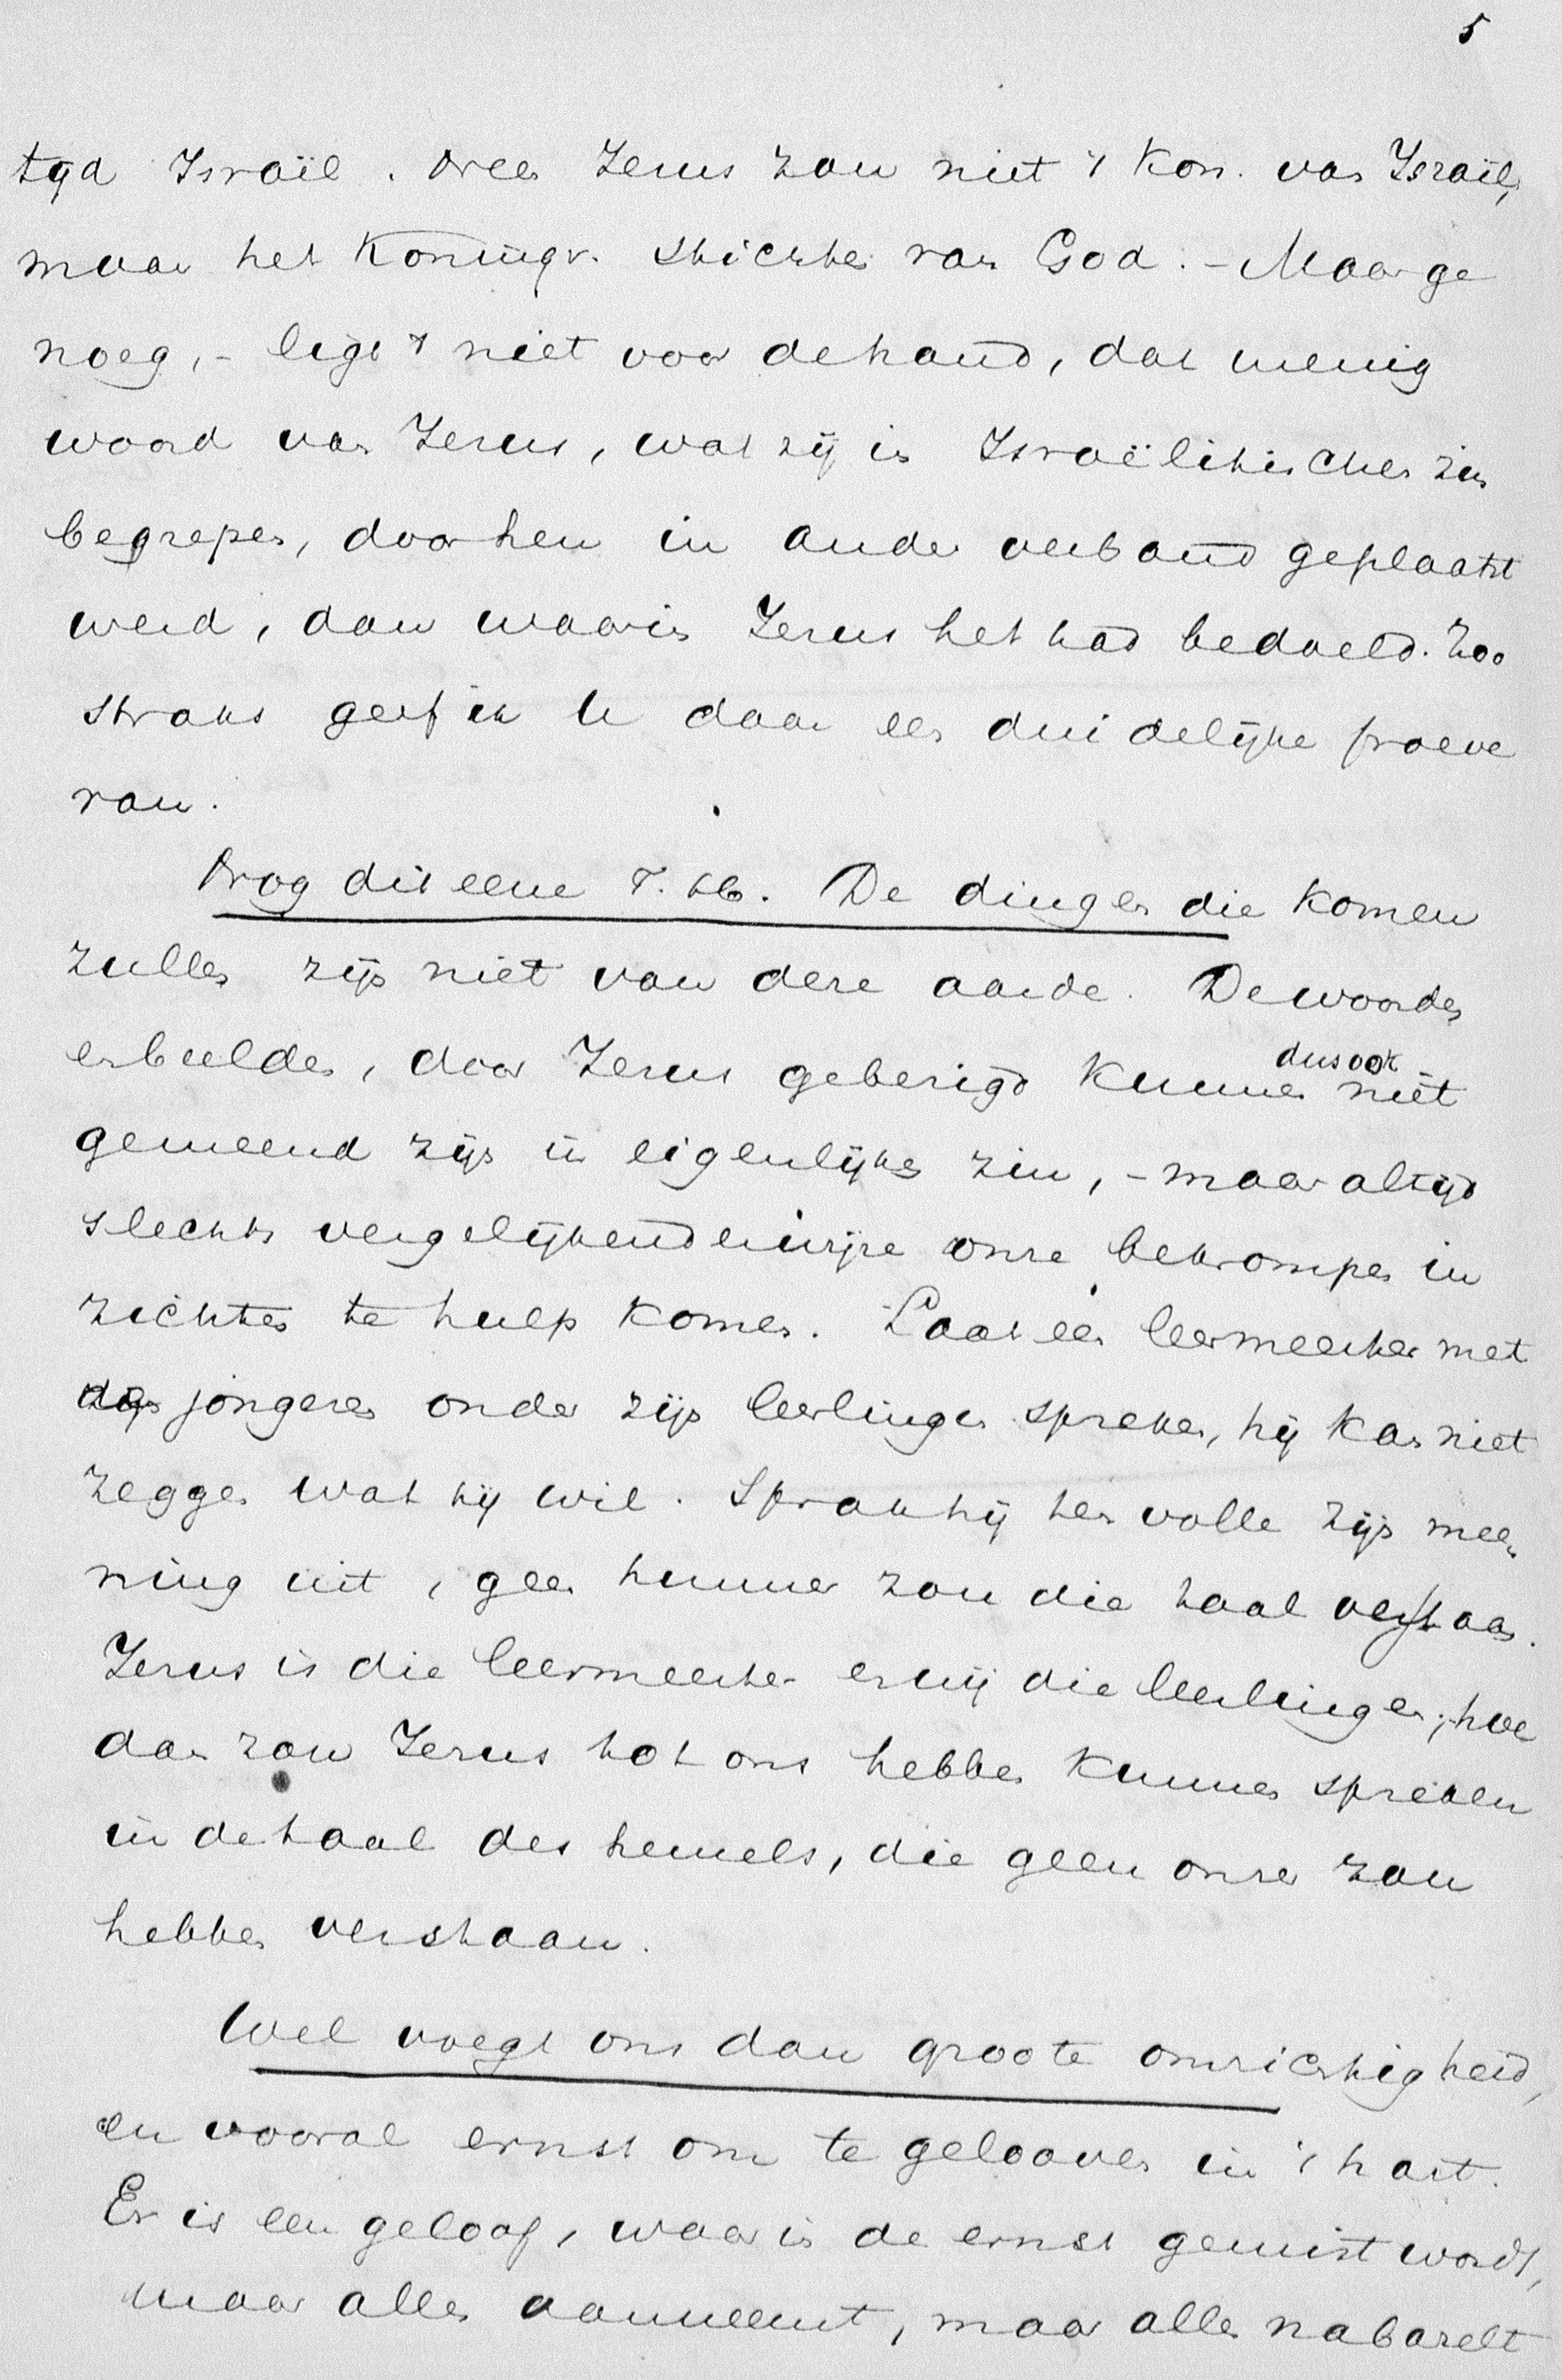 5
tijd Israël. Neen Jezus zou niet 't Kon. van Israël,
maar het Koningr. stichten van God. - Maar ge
noeg, - ligt 't niet voor de hand, dat menig
woord van Jezus, wat zij in Israëlitischen zin
begrepen, door hen in ander verband geplaatst
werd, dan waarin Jezus het had bedoeld. Zoo
straks geef ik U daar een duidelijke proeve
van.
Nog dit eene T. H. De dingen die komen
zullen zijn niet van deze aarde. De woorden
en beelden, door Jezus gebezigd kunnen dus ook niet
gemeend zijn in eigenlijken zin, - maar altijd
slechts vergelijkenderwijze onze bekrompen in
zichten te hulp komen. Laat een leermeester met
de jongeren onder zijn leerlingen spreken, hij kan niet
zeggen wat hij wil. Sprak hij ten volle zijn mee
ning uit, geen hunner zou die taal verstaan.
Jezus is die leermeester en wij die leerlingen; hoe
dan zou Jezus tot ons hebben kunnen spreken
in de taal des hemels, die geen onzer zou
hebben verstaan.
Wel voegt ons dan groote omzichtigheid,
en vooral ernst om te gelooven in 't hart.
Er is een geloof, waarin de ernst gemist wordt,
maar alles aanneemt, maar alles nabazelt